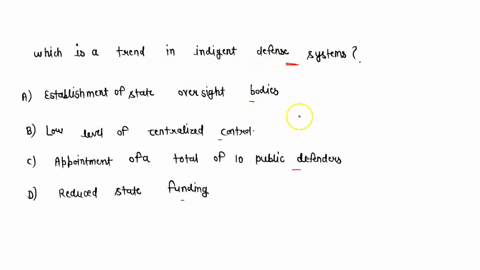 which is a trend in indigent defense systems?
A) Establishment of state oversight bodies
B) Low level of centralized control.
C) Appointment of a total of 10 public defenders
D) Reduced state funding